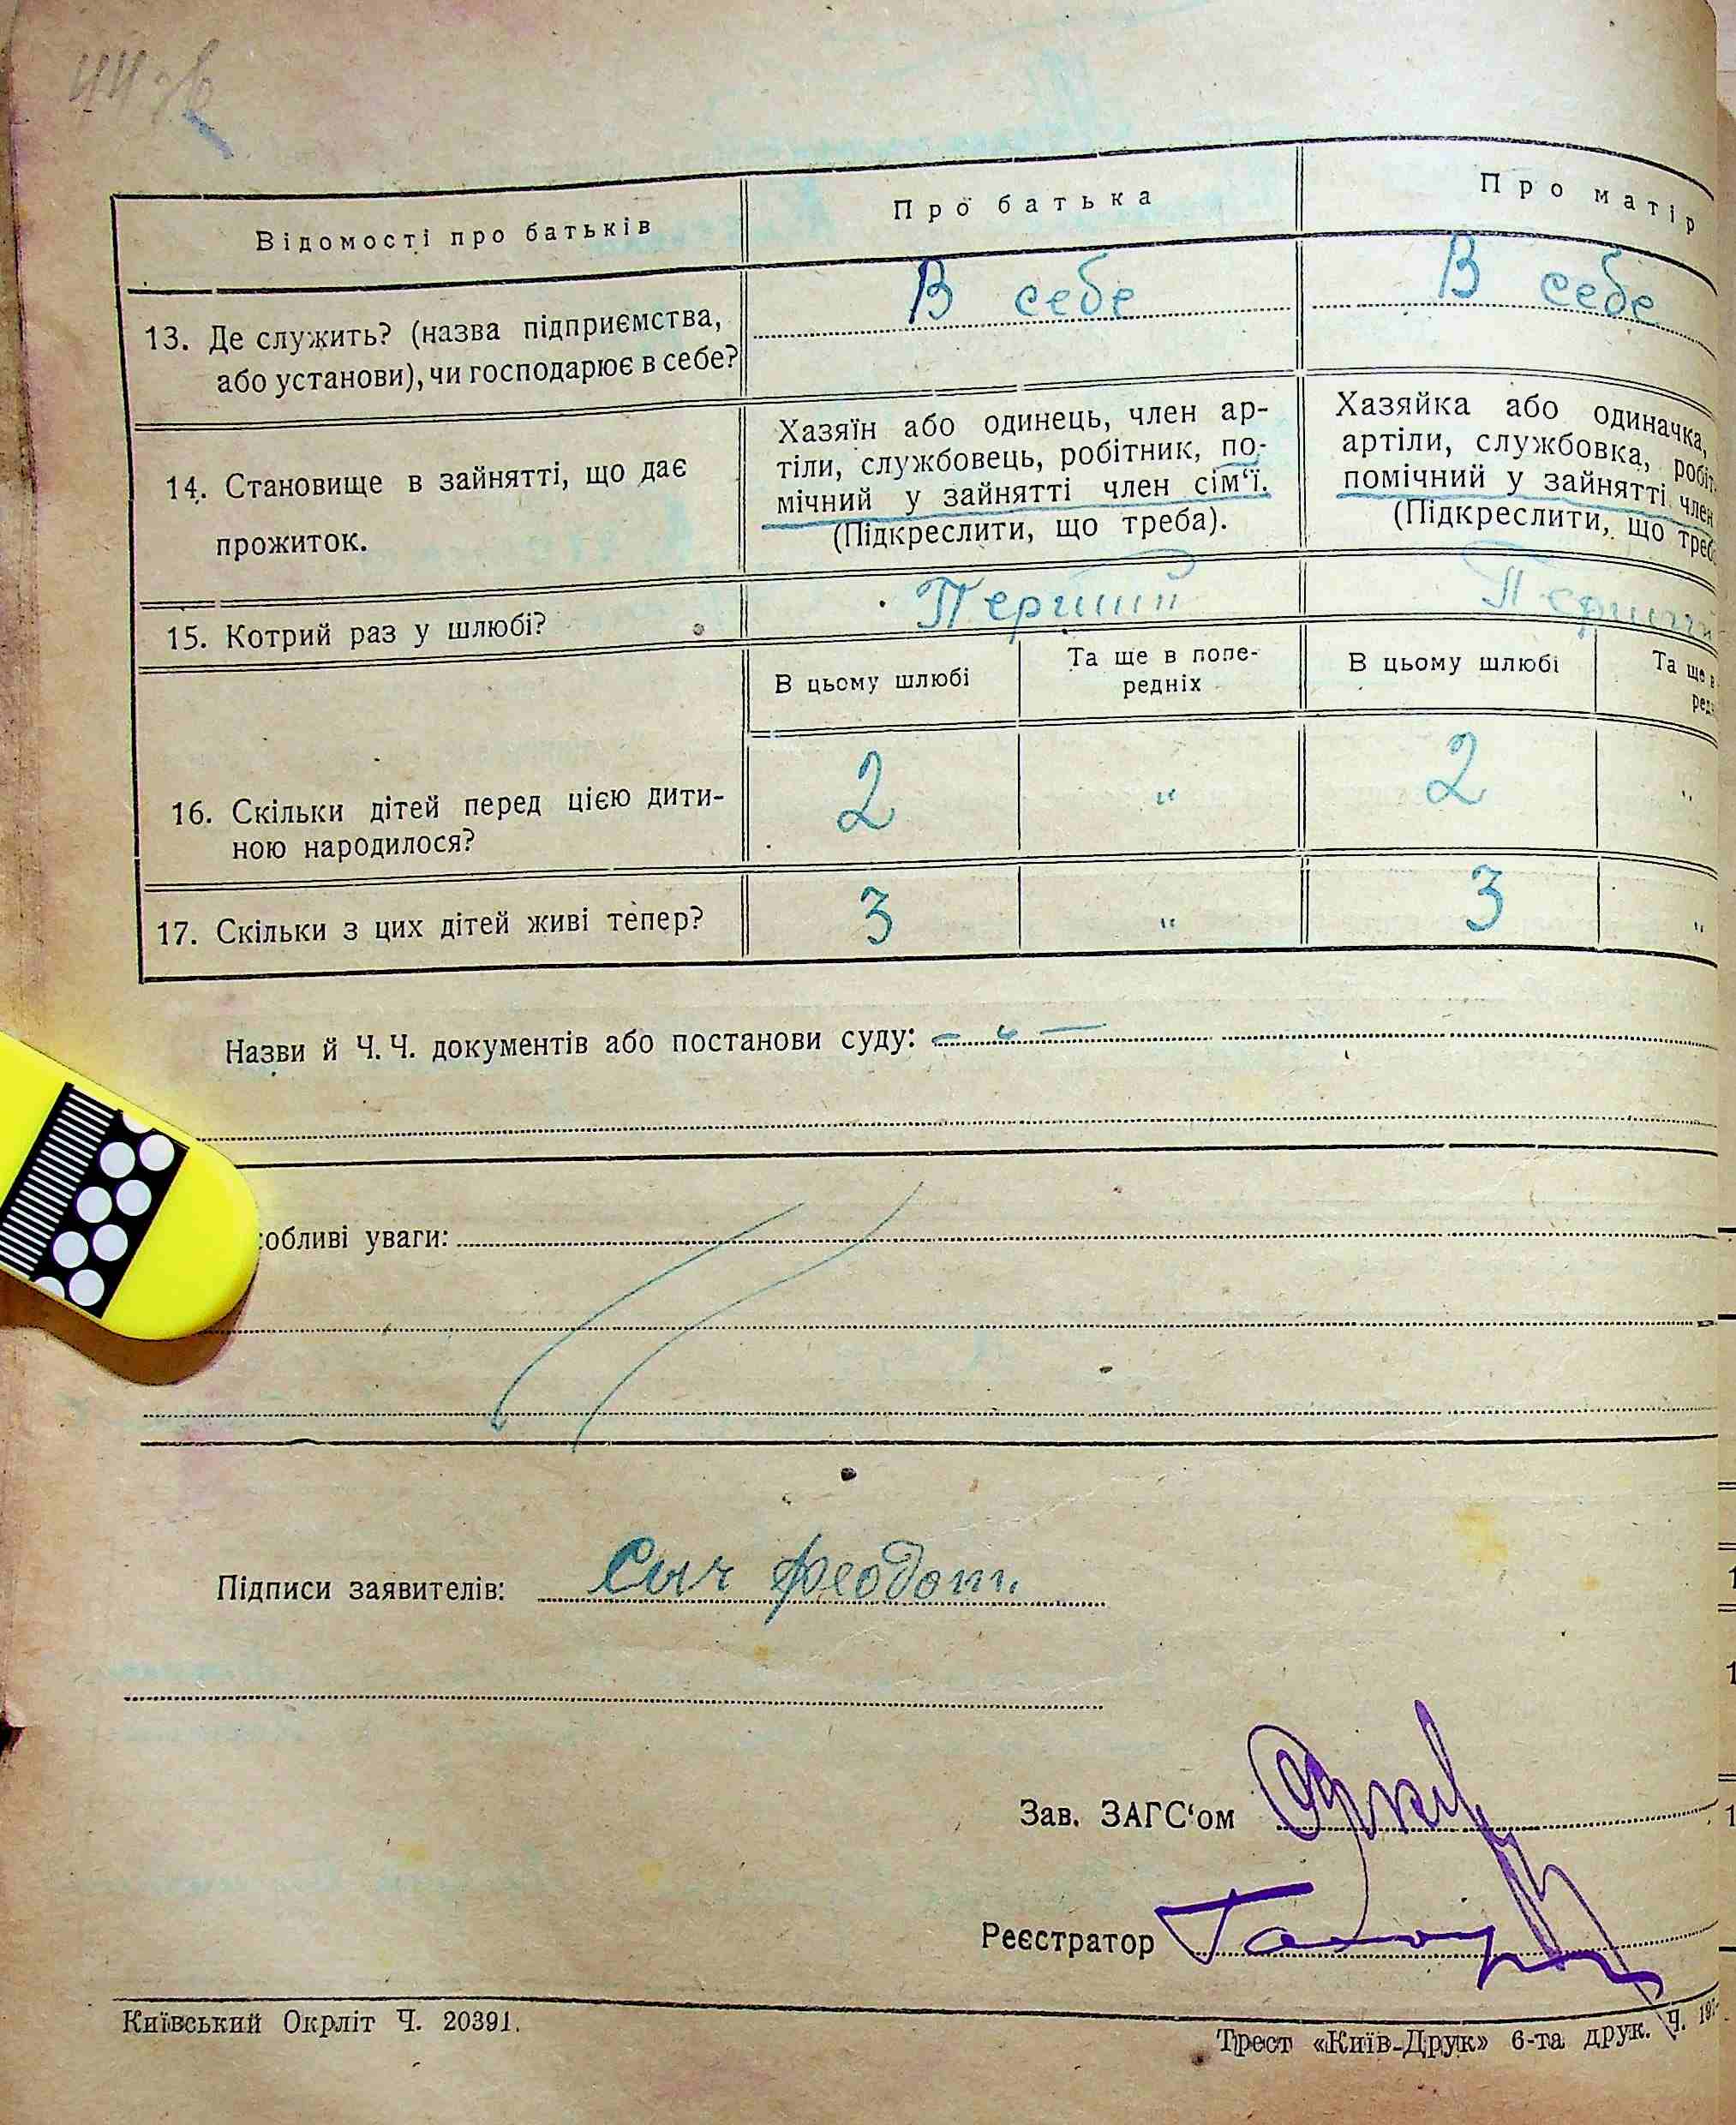 Відомості про батьків
Про батька
Про матір
13. Де служить? (назва підприємства,
або установи), чи господарює в себе?
В себе
В себе
14. Становище в зайнятті, що дає
прожиток.
Хазяїн або одинець, член ар-
тіли, службовець, робітник, по-
мічний у зайнятті член сім‘ї.
(Підкреслити, що треба).
Хазяйка або одиначка,
артіли, службовка, робіт
помічний у зайнятті член
(Підкреслити, що треб
15. Котрий раз у шлюбі?
Перший
Перший
В цьому шлюбі
Та ще в попе-
редніх
В цьому шлюбі
Та ще в
ред
16. Скільки дітей перед цією дити-
ною народилося?
2
"
2
"
17. Скільки з цих дітей живі тепер?
3
"
3
"
Назви й Ч. Ч. документів або постанови суду: - " -
собливі уваги:
Підписи заявителів: Сыч Феодот.
Зав. ЗАГС‘ом
Реєстратор
Київський Окрліт Ч. 20391.
Трест «Київ-Друк» 6-та друк. Ч.